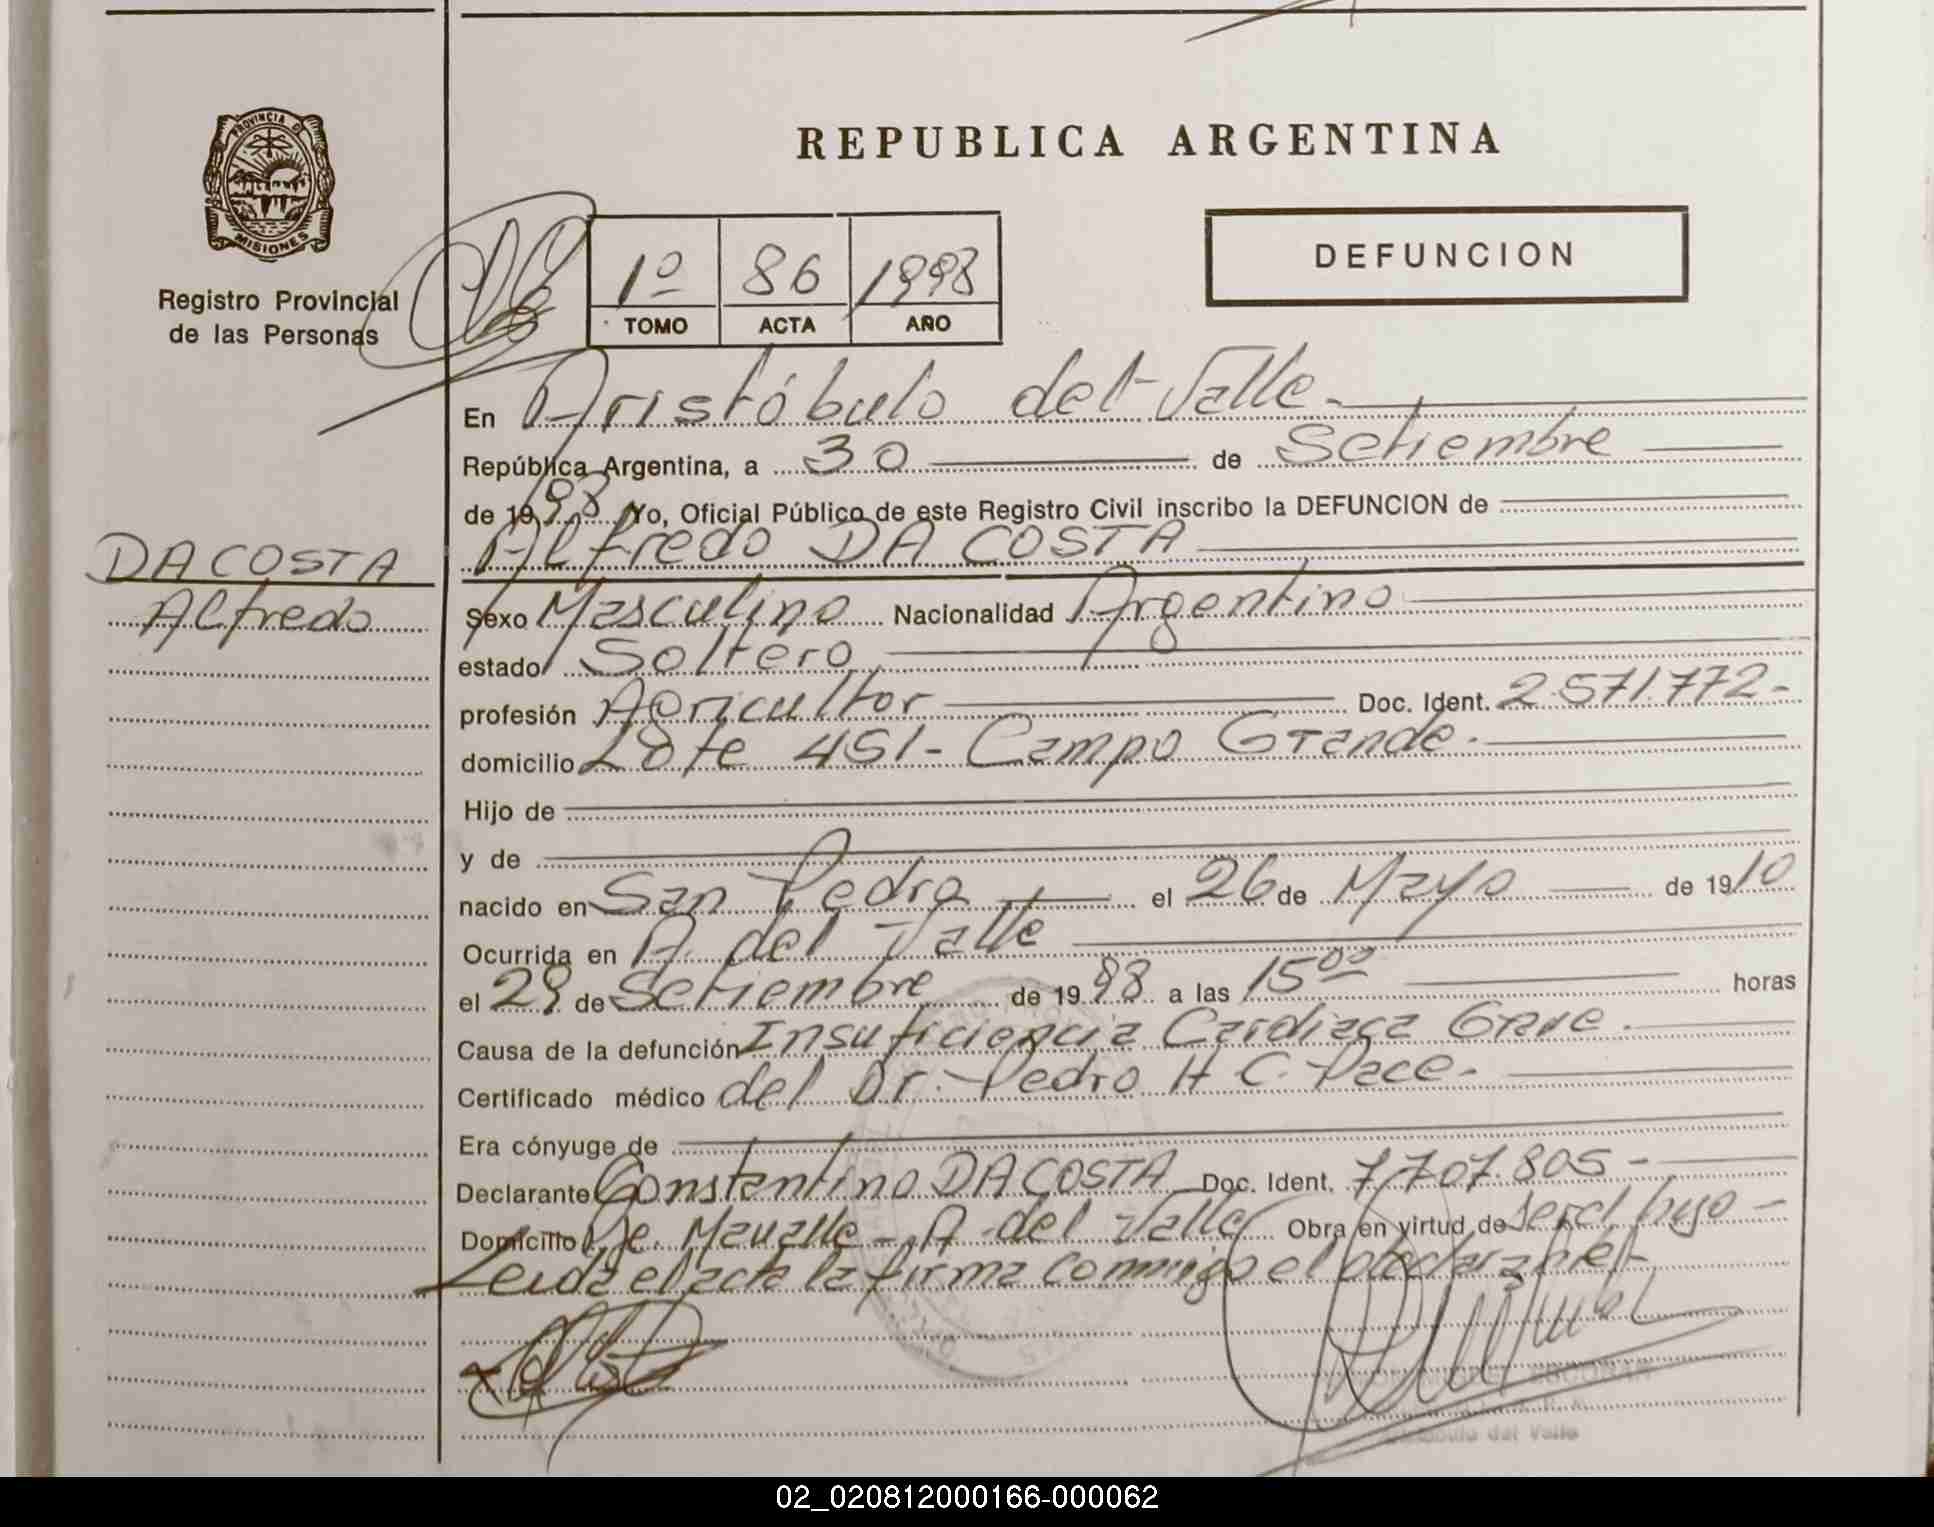 PROVINCIA D
MISIONES
Registro Provincial
de las Personas
REPUBLICA ARGENTINA
DEFUNCION
1º 86 1998
TOMO ACTA AÑO
En Aristóbulo del Valle.
República Argentina, a 30 de Setiembre
de 1998 Yo, Oficial Público de este Registro Civil inscribo la DEFUNCION de
DA COSTA
Alfredo
Alfredo DA COSTA
Sexo Masculino Nacionalidad Argentino
estado Soltero
profesión Agricultor Doc. Ident. 2.571.772-
domicilio Lote 451- Campo Grande.
Hijo de
y de
nacido en San Pedro el 26 de Mayo de 1910
Ocurrida en A. del Valle
el 29 de Setiembre de 1998 a las 15⁰⁰ horas
Causa de la defunción Insuficiencia Cardiaca Grave.
Certificado médico del Dr. Pedro H C. Pace.
Era cónyuge de
Declarante Constantino DA COSTA Doc. Ident. 7.707.805-
Domicilio Mavalle - A del Valle Obra en virtud de ser el hijo -
Leida el acta la firma conmigo el declarante-
ESCOBAR
del Valle
02_020812000166-000062